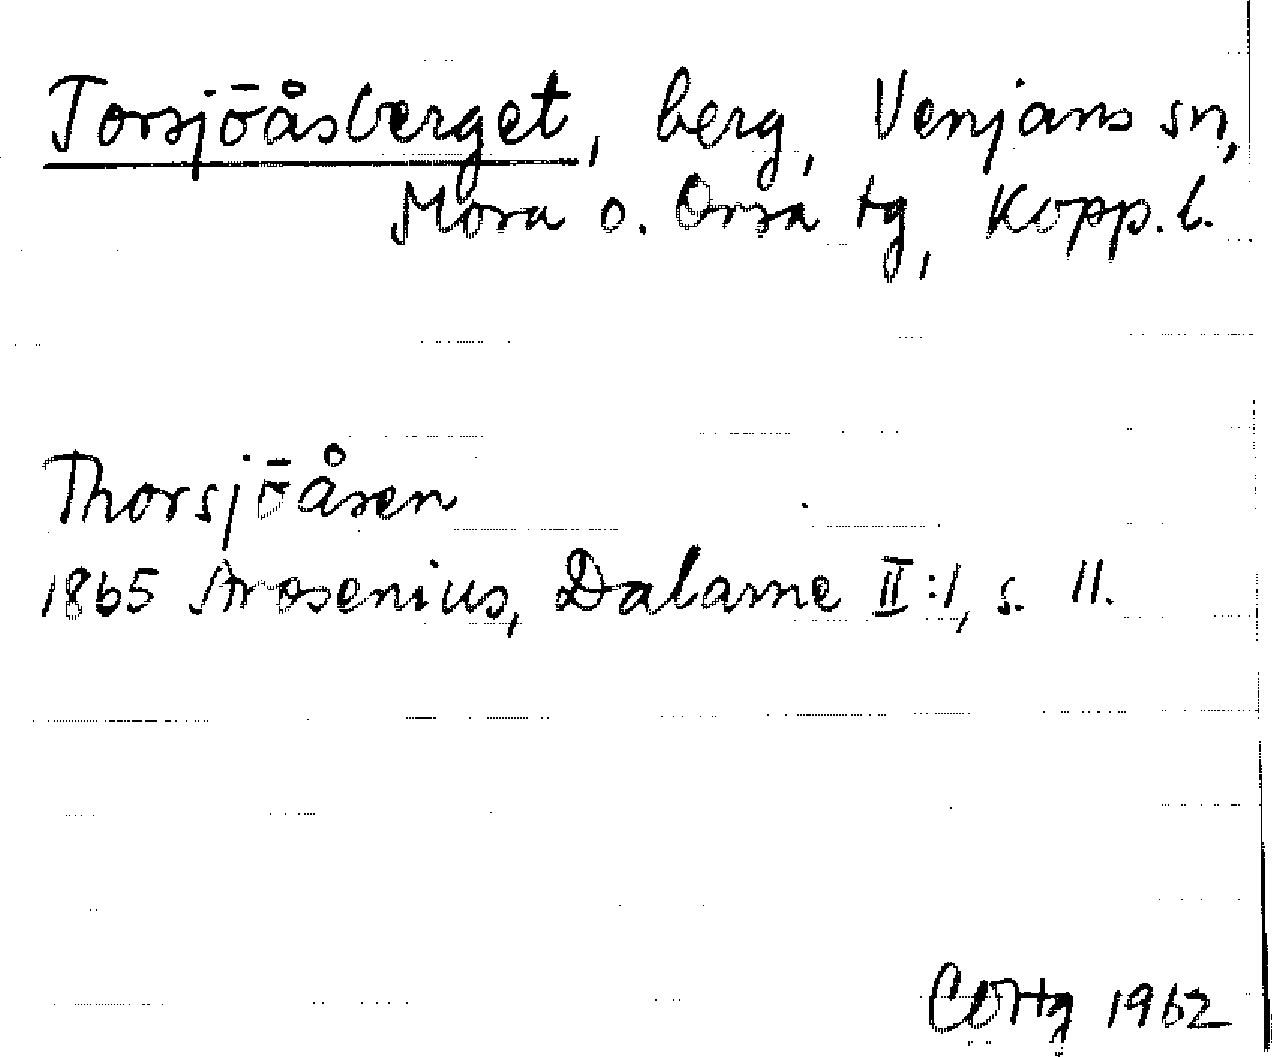 Torsjöåsberget, berg, Venjans sn,
Mora o. Orsa tg, Kopp. l.
Thorsjöåsen
1865 Arosenius, Dalarne II:1, s. 11.
1962